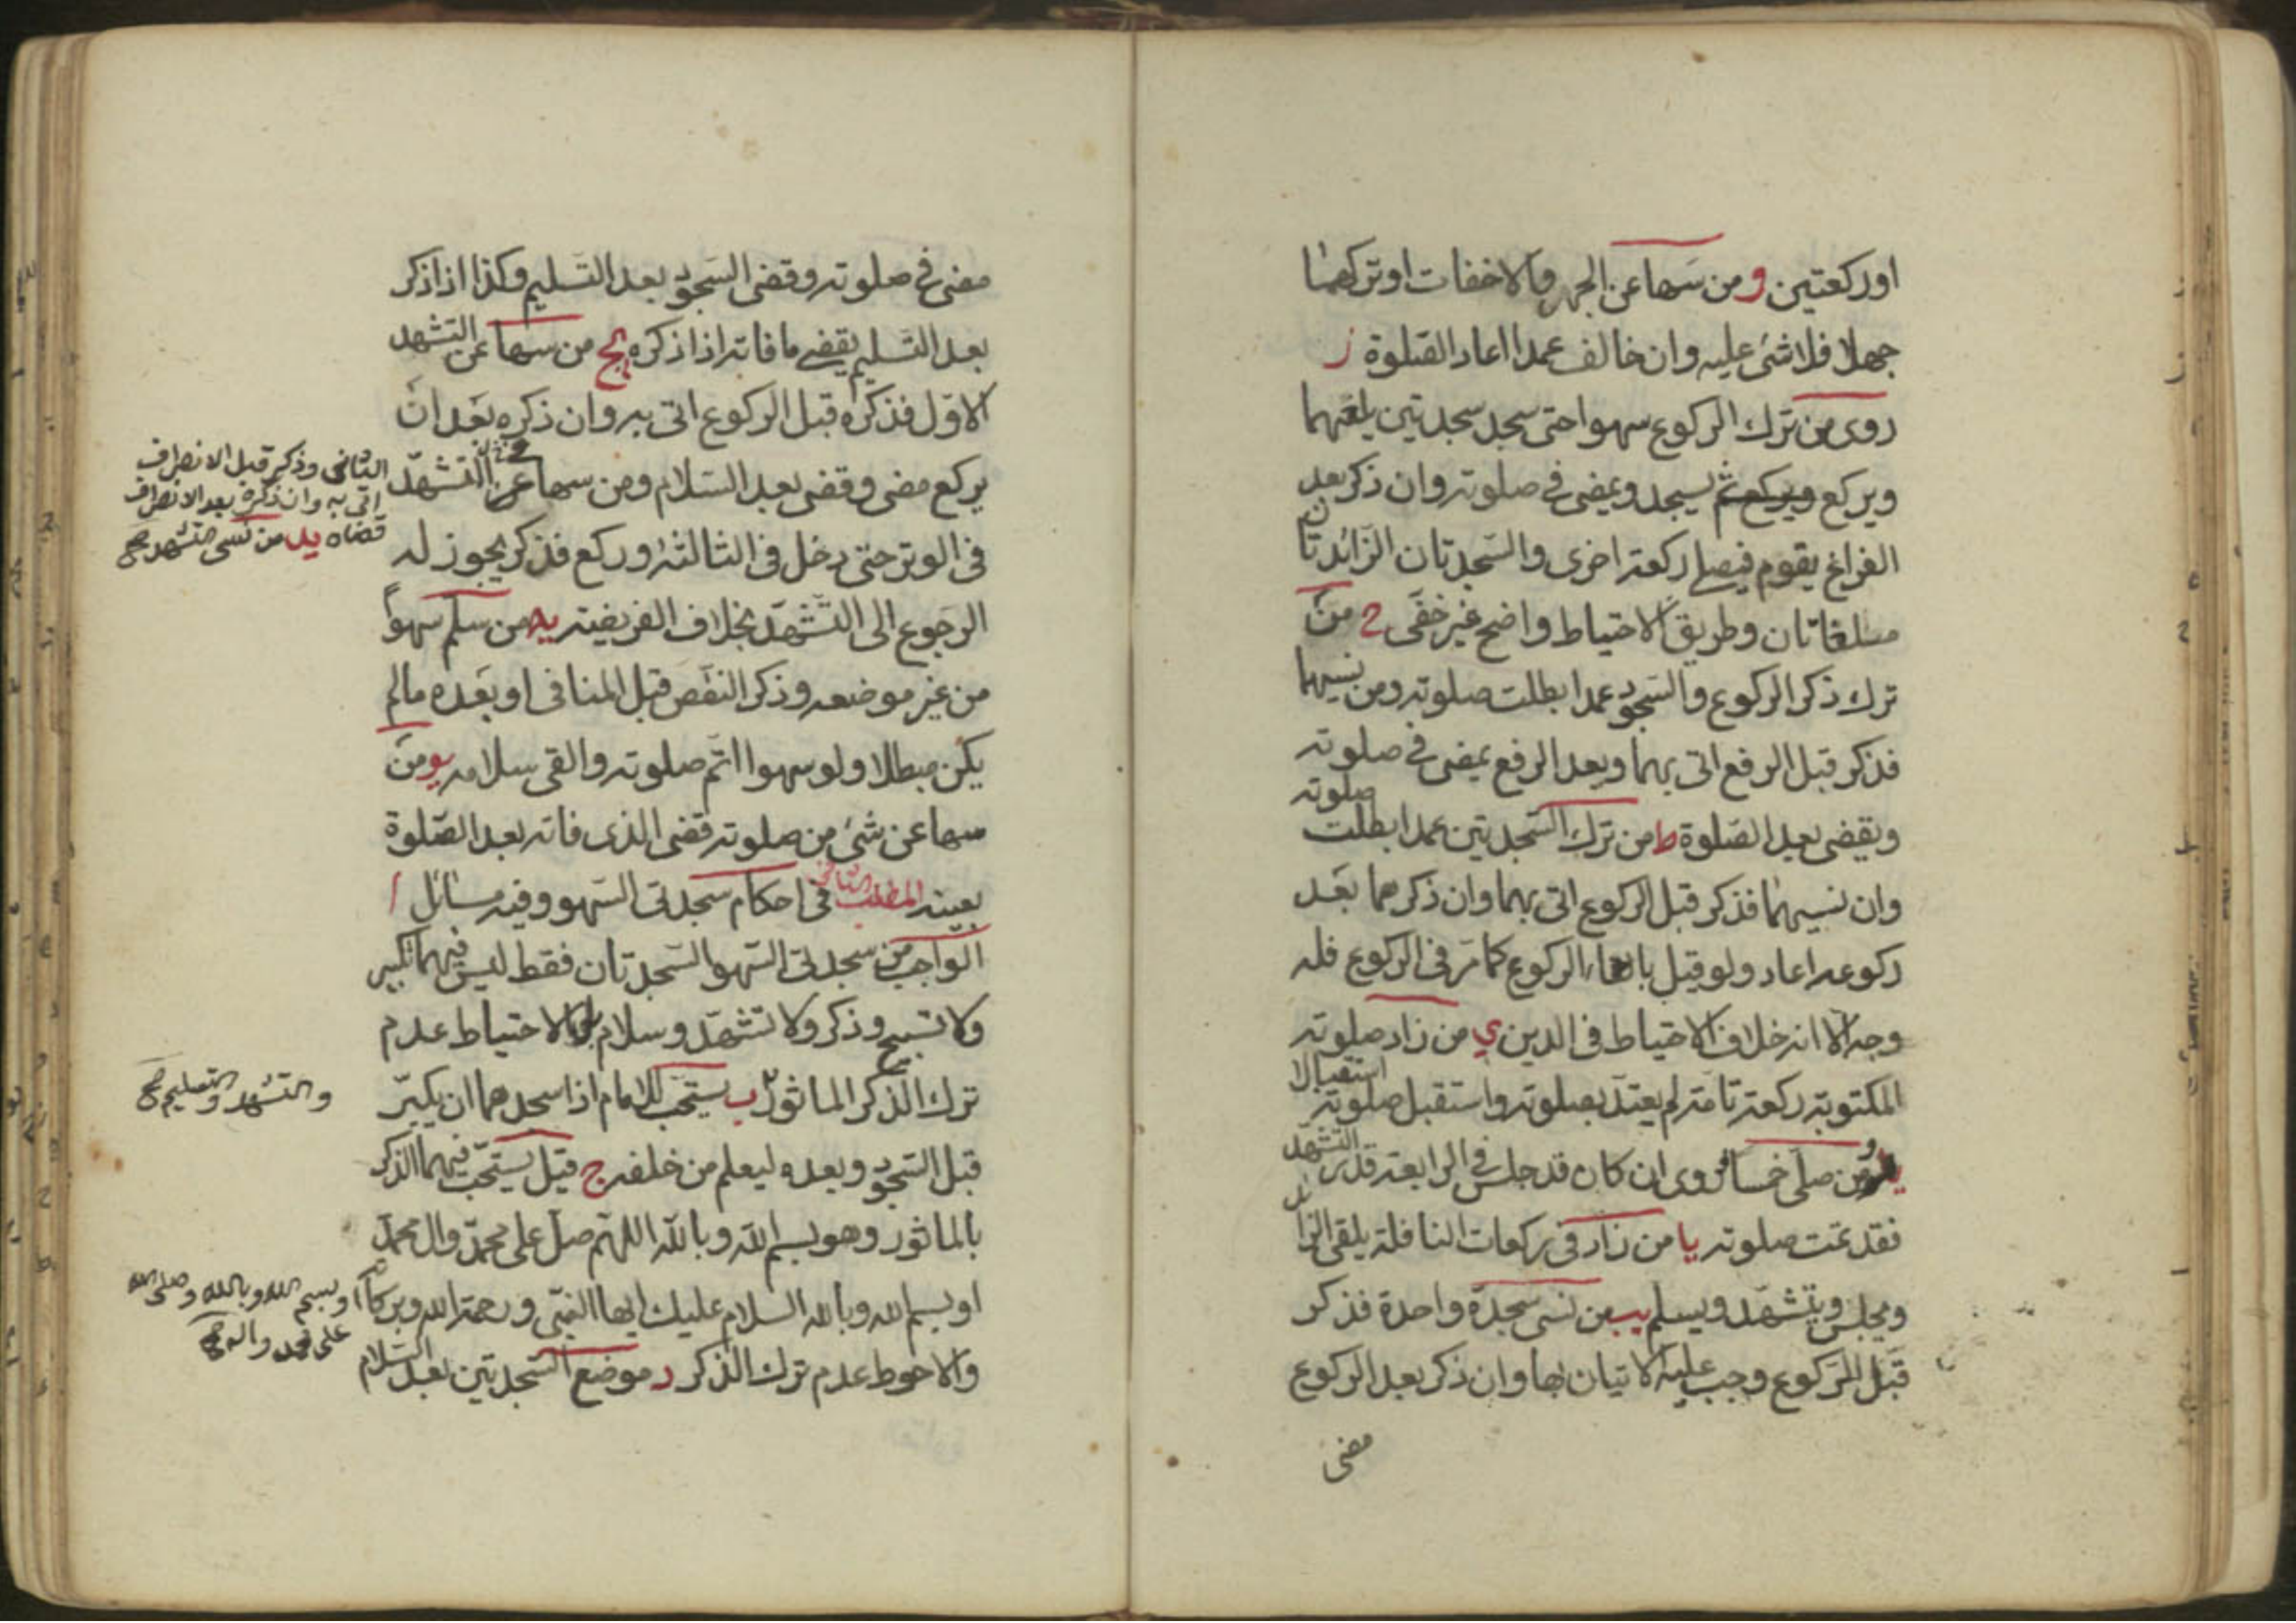 اوركعتين و ومن سها عن الجهر والاخفات او تركهما
جهلا فلا شئ عليه وان خالف عمدا اعاد الصلوة ز
روى من ترك الركوع سهوا حتى سجد سجدتين يلقهما
ويركع ويركع ثم يسجد ويمضى فى صلوته وان ذكر بعد
الفراغ يقوم فيصلى ركعة اخرى والسجدتان الزائدتان
ملغاتان وطريق الاحتياط واضح غير خفى ح من
ترك ذكر الركوع والسجود عمدا بطلت صلوته ومن نسيهما
فذكر قبل الرفع اتى بهما وبعد الرفع يمضى فى صلوته
ويقضى بعد الصلوة ط من ترك السجدتين عمدا بطلت صلوته
وان نسيهما فذكر قبل الركوع اتى بهما وان ذكرهما بعد
ركوعه اعاد ولو قيل بالغاء الركوع كما مر فى الركوع فله
وجه الا انه خلاف الاحتياط فى الدين ي من زاد صلوته
المكتوبة ركعة تامة لم يعتد بصلوته واستقبل صلوته استقبالا
ومن صلى خمسا روى ان كان قد جلس فى الرابعة قدر التشهد
فقد تمت صلوته يا من زاد فى ركعات النافلة يلقى الزائد
ويجلس ويتشهد ويسلم يب من نسى سجدة واحدة فذكر
قبل الركوع وجب عليه الاتيان بها وان ذكر بعد الركوع
مضى
مضى فى صلوته وقضى السجود بعد التسليم وكذا اذا ذكر
بعد التسليم يقضى ما فاته اذا ذكره يج من سها عن التشهد
الاول فذكره قبل الركوع اتى به وان ذكره بعد ان
يركع مضى وقضى بعد السلام ومن سها عن التشهد
الثانى وذكر قبل الانصراف
اتى به وان ذكره بعد الانصراف
قضاه يد من نسى التشهد صح
فى الوتر حتى دخل فى الثالثة وركع فذكر يجوز له
الرجوع الى التشهد بخلاف الفريضة يه من سلم سهوا
من غير موضعه وذكر النقص قبل المنافى او بعده مالم
يكن مبطلا ولو سهوا اتم صلوته والقى سلامه يو من
سها عن شئ من صلوته قضى الذى فاته بعد الصلوة
بعينه المطلب الثانى فى احكام سجدتى السهو وفيه مسائل ا
الواجب من سجدتى السهو السجدتان فقط ليس فيهما تكبير
ولا تسبيح وذكر ولا تشهد وسلام بل الاحتياط عدم
ترك الذكر الماثور ب يستحب للامام اذا سجدهما ان يكبر
والتشهد والتسليم صح
قبل السجود وبعده ليعلم من خلفه ج قيل يستحب فيهما الذكر
بالماثور وهو بسم الله وبالله اللهم صل على محمد وال محمد
او بسم الله وبالله السلام عليك ايها النبى ورحمة الله وبركاته
او بسم الله وبالله وصلى الله
على محمد واله صح
والاحوط عدم ترك الذكر د موضع السجدتين بعد السلام